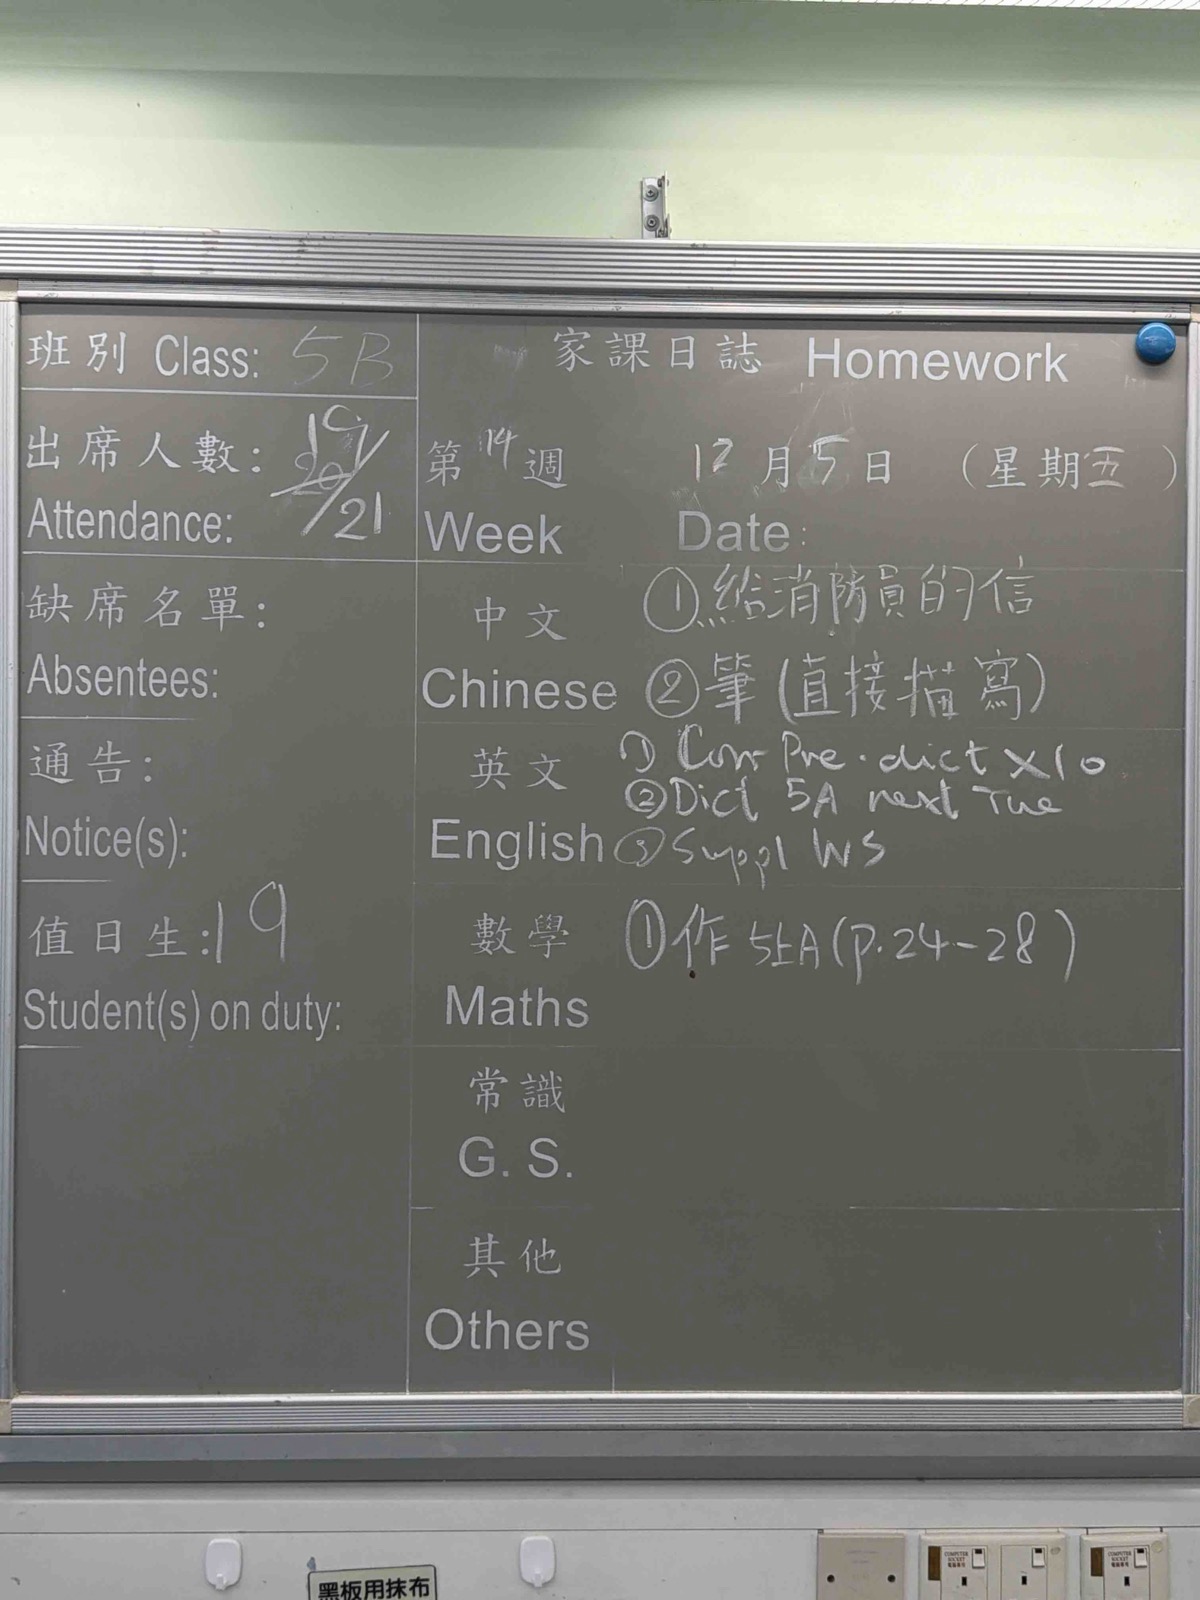 班別 Class: 5B
出席人數: 19/21
Attendance:
缺席名單:
Absentees:
通告:
Notice(s):
值日生: 19
Student(s) on duty:
家課日誌 Homework
第14週 12月5日 (星期五)
Week Date:
中文 ①給消防員的信
Chinese ②筆(直接描寫)
英文 ① Corr Pre.dict x10
②Dict 5A next Tue
English ③Suppl WS
數學 ①作5上A(p.24-28)
Maths
常識
G. S.
其他
Others
黑板用抹布
COMPUTER SOCKET
COMPUTER SOCKET